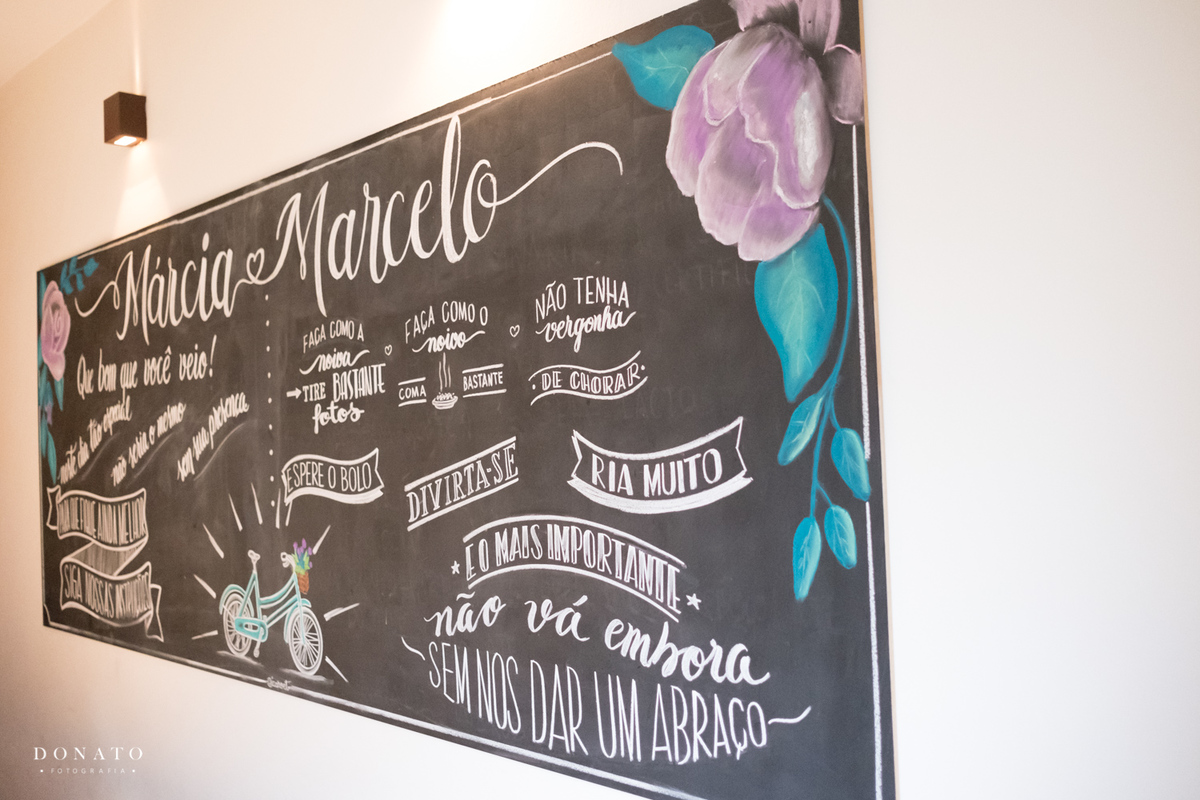 Márcia Marcelo
Que bom que você veio!
não seria o mesmo
sem sua presença
SIGA NOSSAS INSTRUÇÕES
FAÇA COMO A
noiva
TIRE BASTANTE
fotos
FAÇA COMO O
noivo
COMA BASTANTE
NÃO TENHA
vergonha
DE CHORAR
ESPERE O BOLO
DIVIRTA-SE
RIA MUITO
E O MAIS IMPORTANTE
não vá embora
SEM NOS DAR UM ABRAÇO
DONATO
FOTOGRAFIA